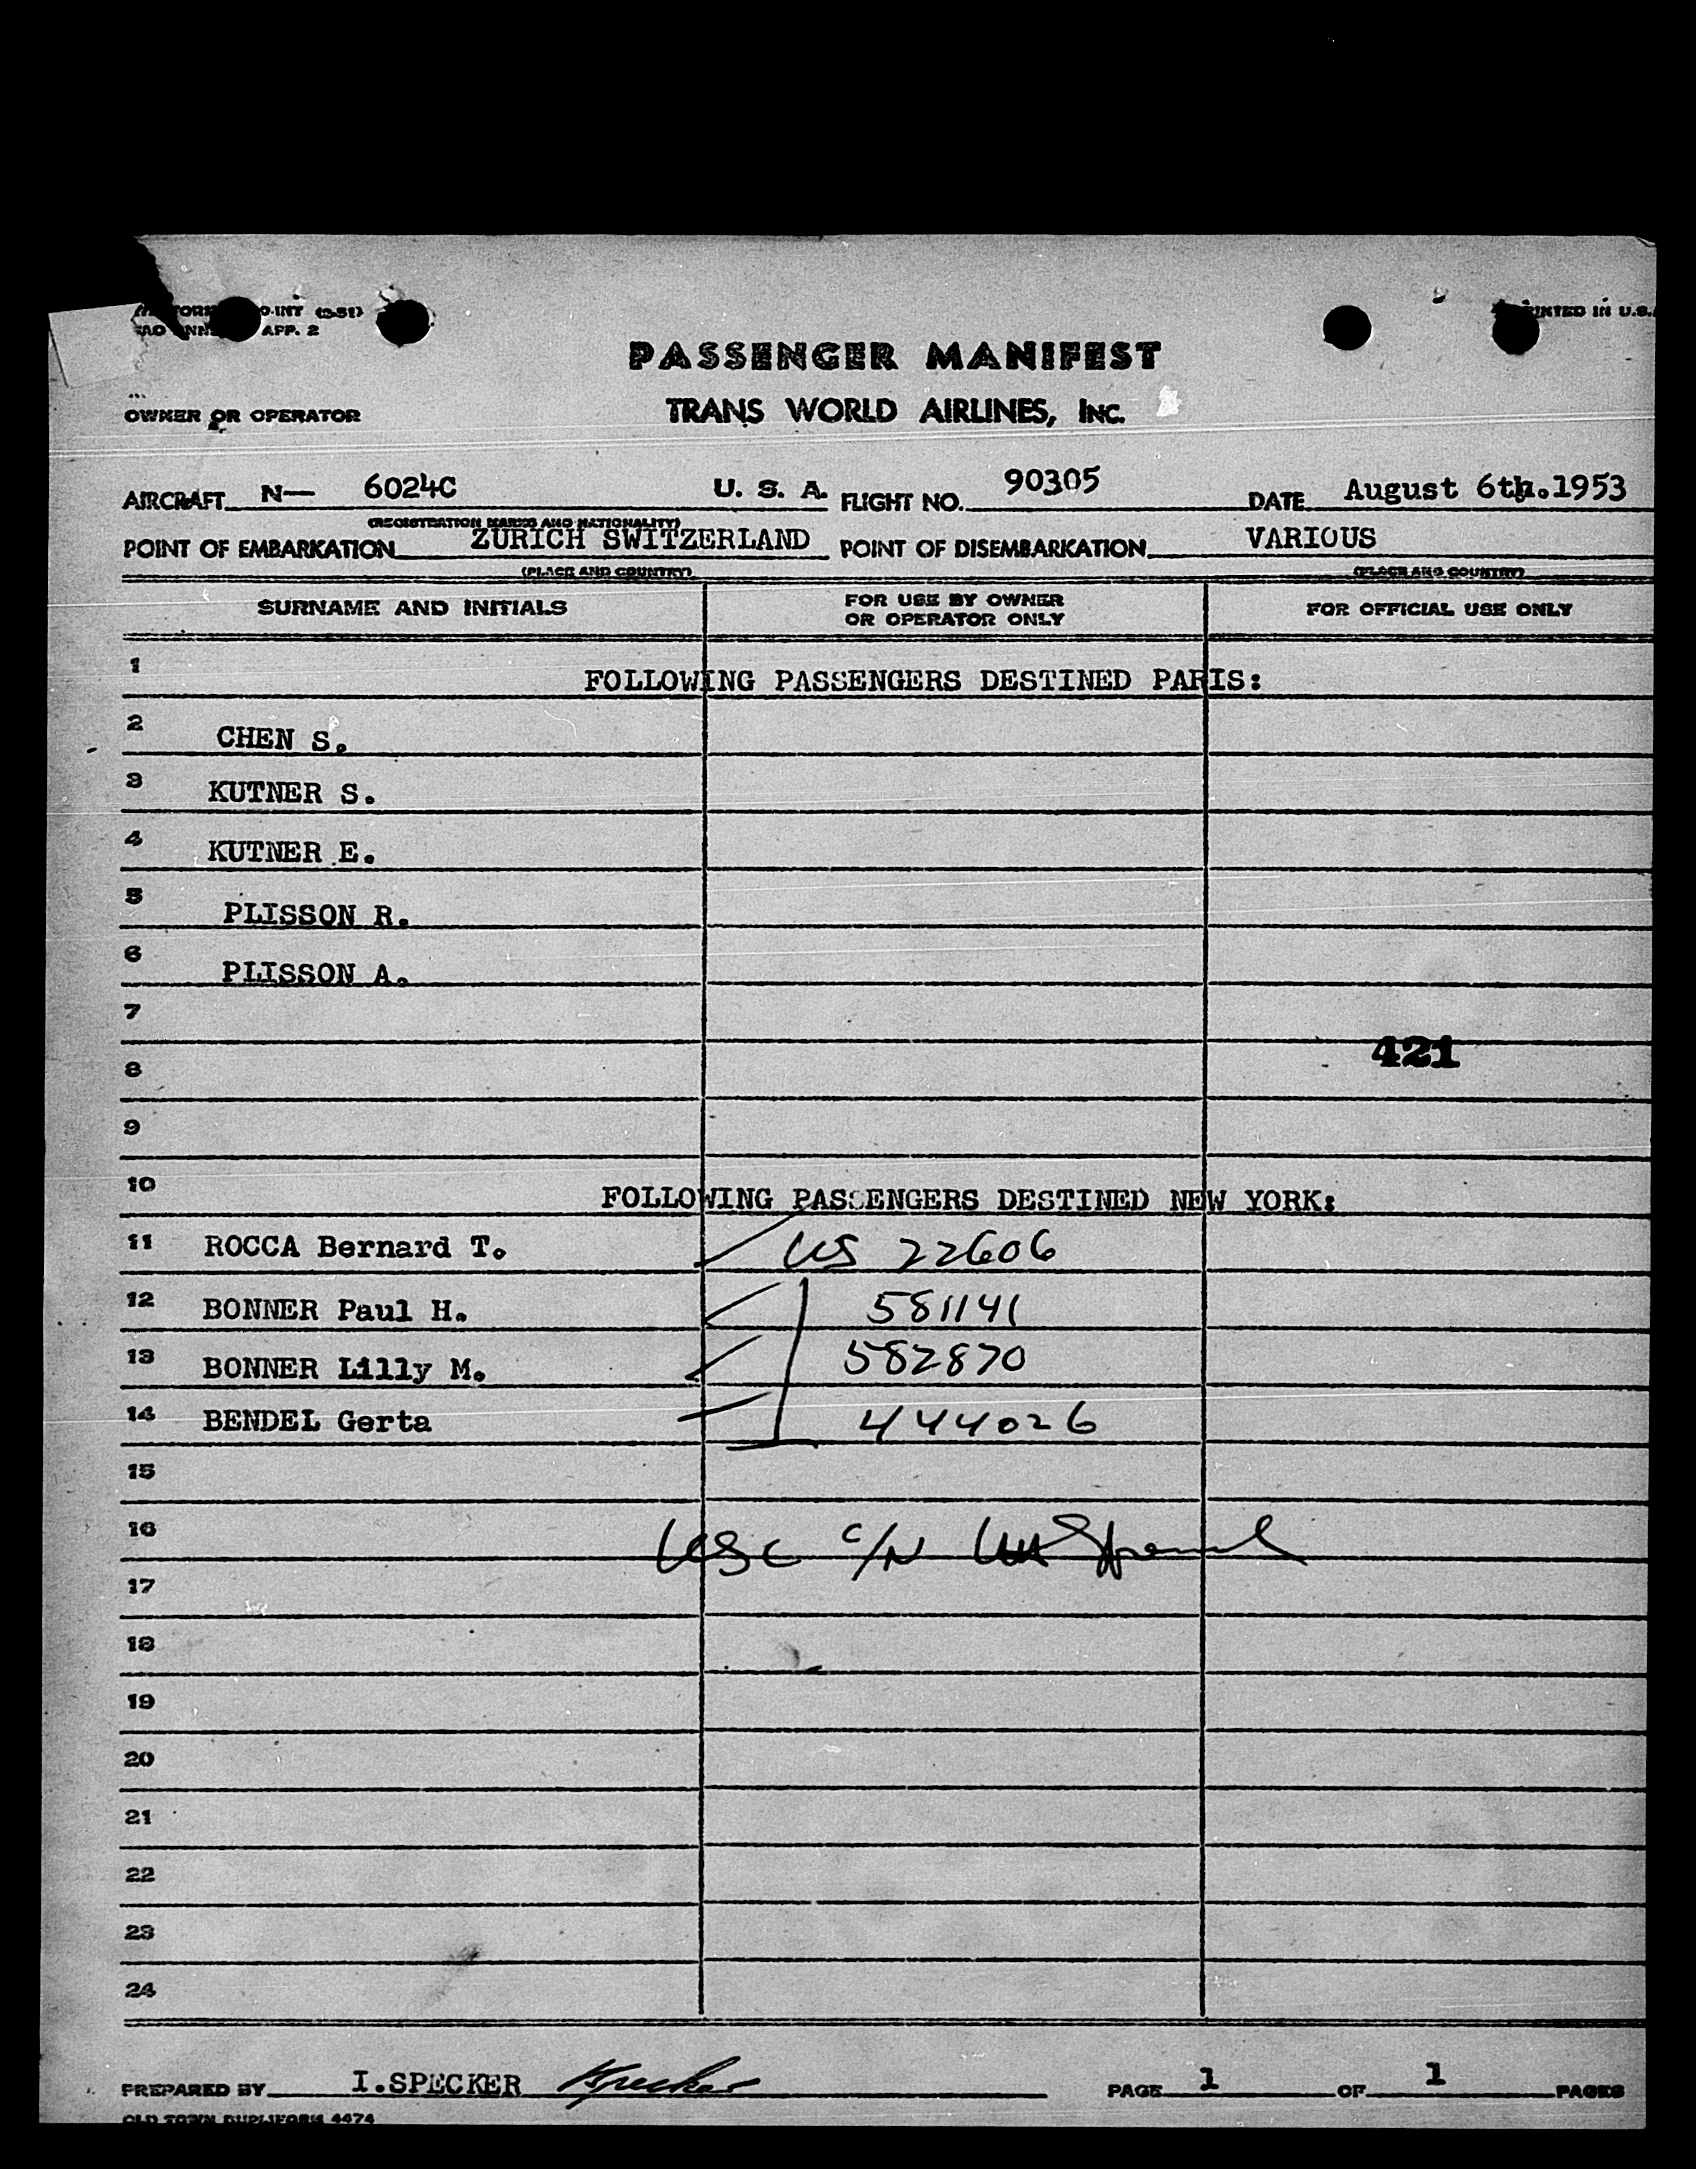 O-INT (3-51)
APP. 2
PRINTED IN U.S.
PASSENGER MANIFEST
OWNER OR OPERATOR
TRANS WORLD AIRLINES, INC.
AIRCRAFT N— 6024C U. S. A. FLIGHT NO. 90305 DATE August 6th.1953
(REGISTRATION MARKS AND NATIONALITY)
POINT OF EMBARKATION ZURICH SWITZERLAND POINT OF DISEMBARKATION VARIOUS
(PLACE AND COUNTRY) (PLACE AND COUNTRY)
SURNAME AND INITIALS FOR USE BY OWNER OR OPERATOR ONLY FOR OFFICIAL USE ONLY
1 FOLLOWING PASSENGERS DESTINED PARIS:
2 CHEN S.
3 KUTNER S.
4 KUTNER E.
5 PLISSON R.
6 PLISSON A.
7
421
8
9
10 FOLLOWING PASSENGERS DESTINED NEW YORK:
11 ROCCA Bernard T. US 22606
12 BONNER Paul H. 581141
13 BONNER Lilly M. 582870
14 BENDEL Gerta 444026
15
16 USC C/N
17
18
19
20
21
22
23
24
PREPARED BY I.SPECKER Specker PAGE 1 OF 1 PAGES
OLD TOWN DUPLIFORM 4474